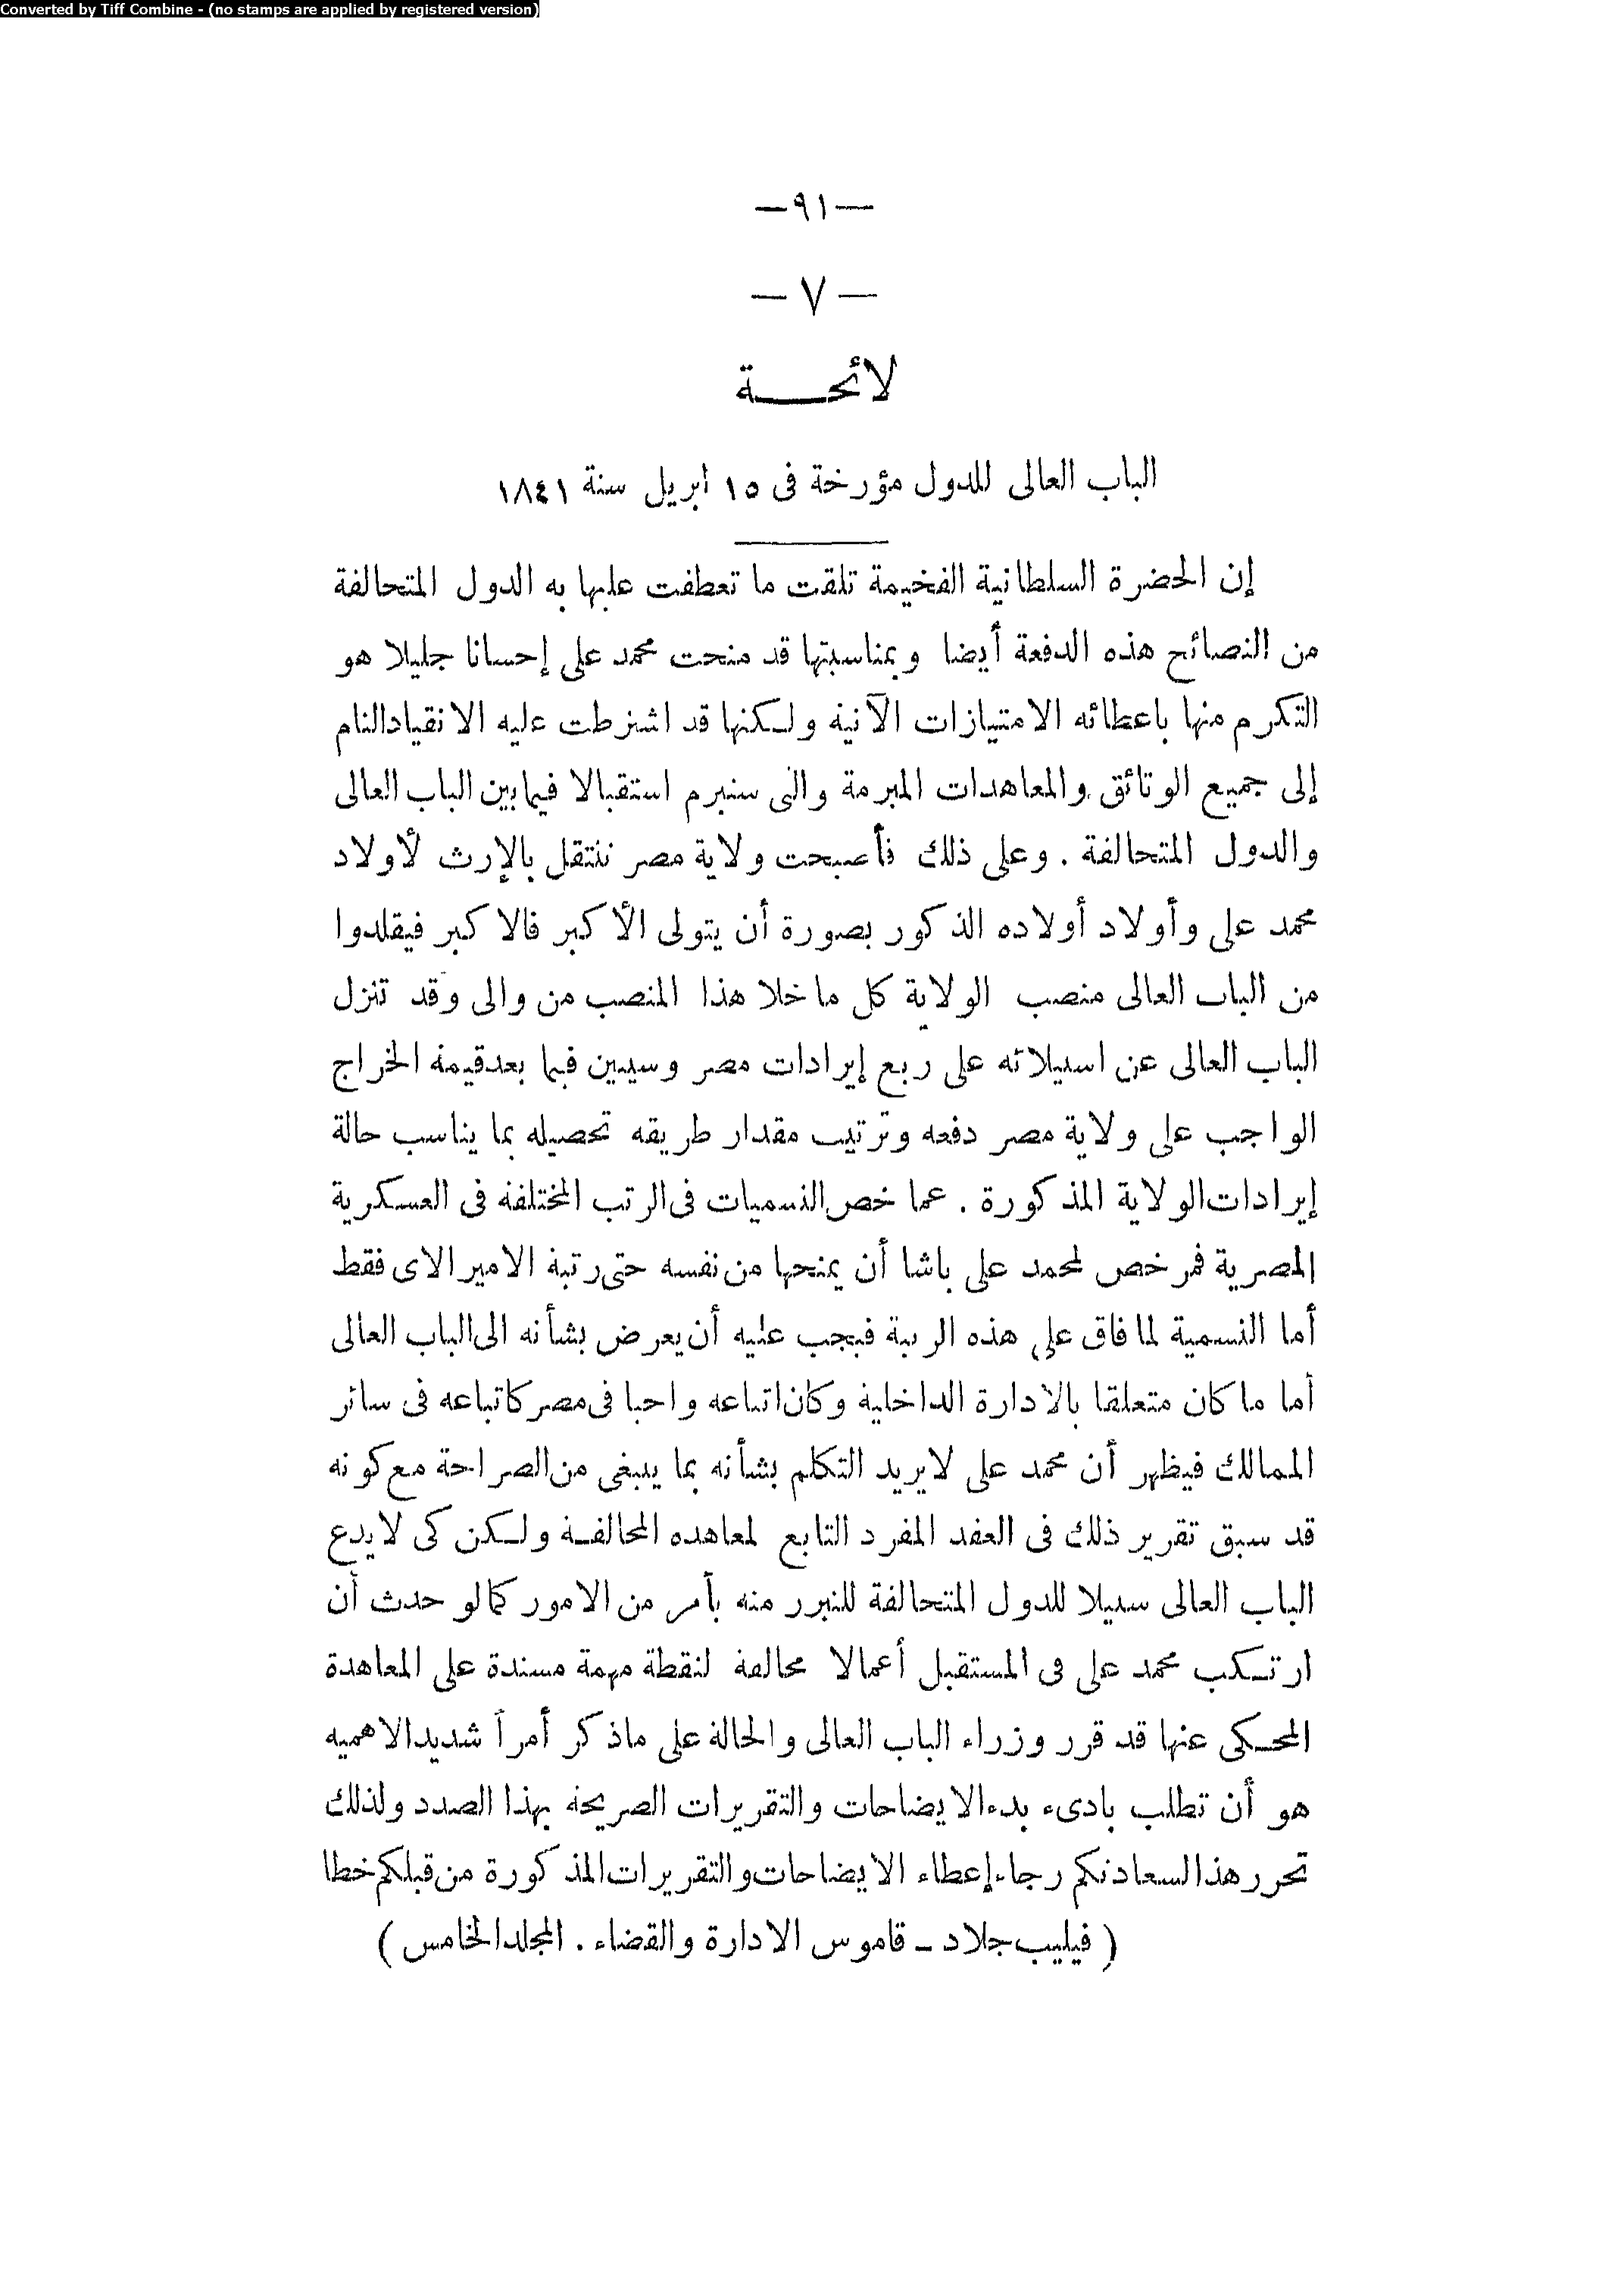 Converted by Tiff Combine - (no stamps are applied by registered version)
— ٩١ —
— ٧ —
لائحـــة
الباب العالى للدول مؤرخة فى ١٥ ابريل سنة ١٨٤١
إن الحضرة السلطانية الفخيمة تلقت ما تعطفت عليها به الدول المتحالفة
من النصائح هذه الدفعة أيضا وبمناسبتها قد منحت محمد على إحسانا جليلا هو
التكرم منها باعطائه الامتيازات الآتية ولـكنها قد اشترطت عليه الانقياد التام
إلى جميع الوثائق والمعاهدات المبرمة والتى ستبرم استقبالا فيما بين الباب العالى
والدول المتحالفة . وعلى ذلك فأصبحت ولاية مصر تنتقل بالإرث لأولاد
محمد على وأولاد أولاده الذكور بصورة أن يتولى الأكبر فالاكبر فيقلدوا
من الباب العالى منصب الولاية كل ما خلا هذا المنصب من والى وقد تنزل
الباب العالى عن استيلائه على ربع إيرادات مصر وسيبين فيما بعد قيمة الخراج
الواجب على ولاية مصر دفعه وترتيب مقدار طريقه تحصيله بما يناسب حالة
إيرادات الولاية المذكورة . عما خص التسميات فى الرتب المختلفة فى العسكرية
المصرية فمرخص لمحمد على باشا أن يمنحها من نفسه حتى رتبة الاميرالاى فقط
أما التسمية لما فاق على هذه الرتبة فيجب عليه أن يعرض بشأنه الى الباب العالى
أما ما كان متعلقا بالادارة الداخلية وكان اتباعه واجبا فى مصر كاتباعه فى سائر
الممالك فيظهر أن محمد على لا يريد التكلم بشأنه بما ينبغى من الصراحة مع كونه
قد سبق تقرير ذلك فى العقد المفرد التابع لمعاهده المحالفـة ولـكن كى لا يدع
الباب العالى سبيلا للدول المتحالفة للتبرر منه بأمر من الامور كما لو حدث أن
ارتـكب محمد على فى المستقبل أعمالا مخالفة لنقطة مهمة مسندة على المعاهدة
المحـكى عنها قد قرر وزراء الباب العالى والحالة على ماذكر أمراً شديد الاهميه
هو أن تطلب بادىء بدء الايضاحات والتقريرات الصريحة بهذا الصدد ولذلك
تحرر هذا لسعادتكم رجاء إعطاء الايضاحات والتقريرات المذكورة من قبلكم خطا
( فيليب جلاد ــ قاموس الادارة والقضاء . المجلد الخامس )